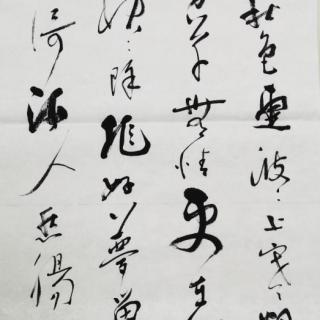 秋色連波〻上寒烟
芳草無情更在
夜〻除非好夢留
倚酒入愁腸